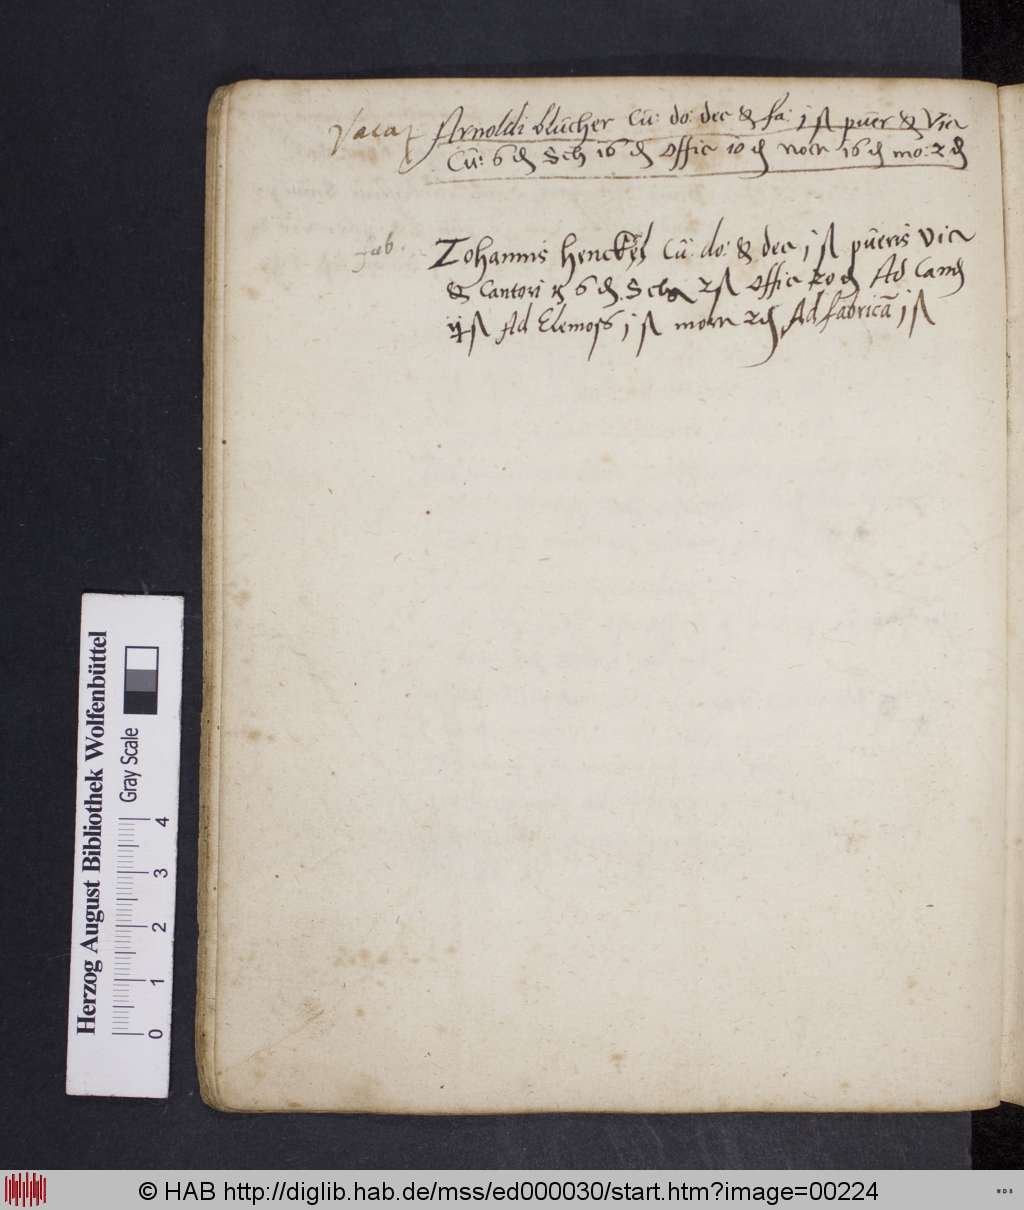 Vacat Arnoldi blücher Cū: do: dec & fa: j ß puer & Vic
Cū: 6 ₰ Sch 16 ₰ Offic 10 ₰ nocr 16 ₰ mo: 2 ₰
fab. Johannis henckel Cū: do: & dec j ß pueris Vic
& Cantori 6 ₰ Sch 2 ß Offic 20 ₰ Ad Cand
ij ß Ad Elemoss j ß morr 2 ₰ Ad fabricā j ß
Herzog August Bibliothek Wolfenbüttel
Gray Scale
0 1 2 3 4
© HAB http://diglib.hab.de/mss/ed000030/start.htm?image=00224
WDB